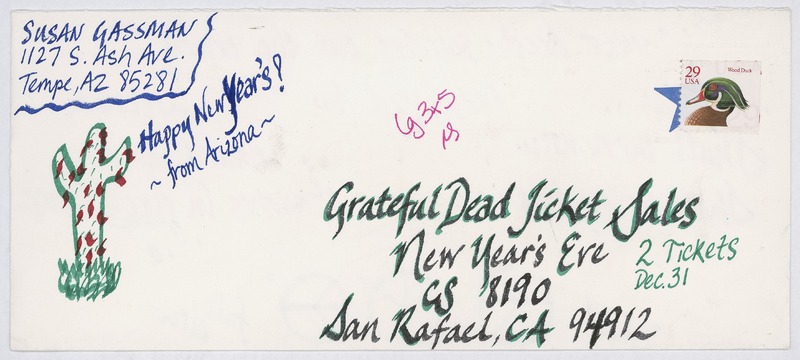 SUSAN GASSMAN
1127 S. Ash Ave.
Tempe, AZ 85281
Happy New Year's!
~ from Arizona ~
29
USA
Wood Duck
Lg 3x5
Grateful Dead Ticket Sales
New Year's Eve
2 Tickets
Dec. 31
GS 8190
San Rafael, CA 94912